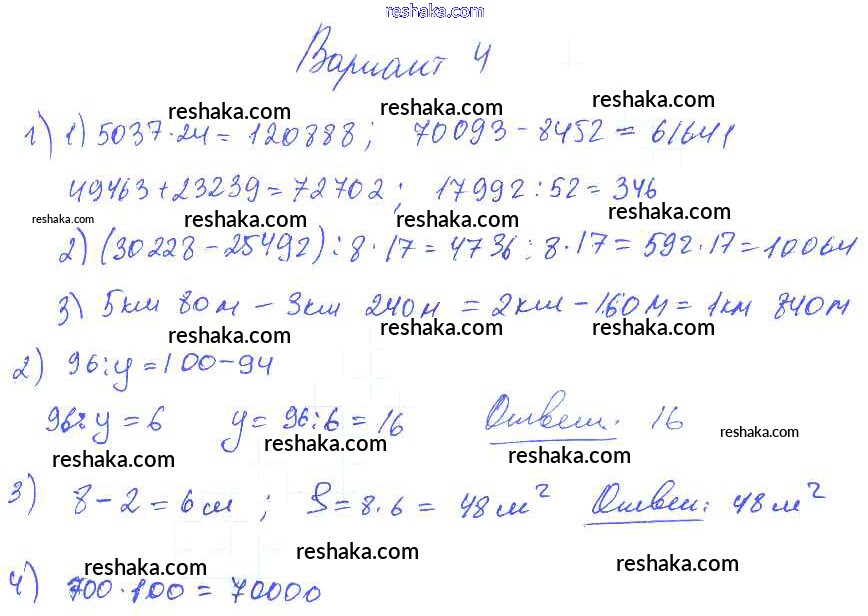 reshaka.com
Вариант 4
reshaka.com reshaka.com reshaka.com
1) 1) 5037·24 = 120888; 70093 - 8452 = 61641
49463 + 23239 = 72702; 17992 : 52 = 346
reshaka.com reshaka.com reshaka.com reshaka.com
2) (30228 - 25492) : 8 · 17 = 4736 : 8 · 17 = 592 · 17 = 10064
3) 5км 80м - 3км 240м = 2км - 160м = 1км 840м
reshaka.com reshaka.com reshaka.com
2) 96 : y = 100 - 94
96 : y = 6 y = 96 : 6 = 16 Ответ: 16
reshaka.com reshaka.com reshaka.com reshaka.com
3) 8 - 2 = 6 см; S = 8 · 6 = 48 м² Ответ: 48 м²
reshaka.com reshaka.com reshaka.com
4) 700 · 100 = 70000